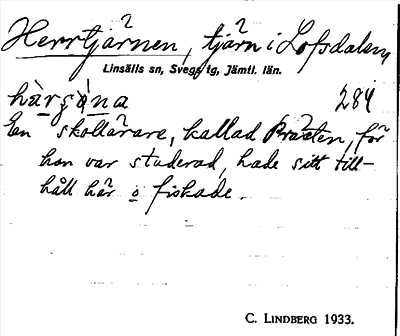 Herrtjärnen, tjärn i Lofsdalen,
Linsälls sn, Svegs tg, Jämtl. län.
284
En skollärare, kallad Prästen, för
han var studerad, hade sitt till-
håll här o fiskade.
C. LINDBERG 1933.